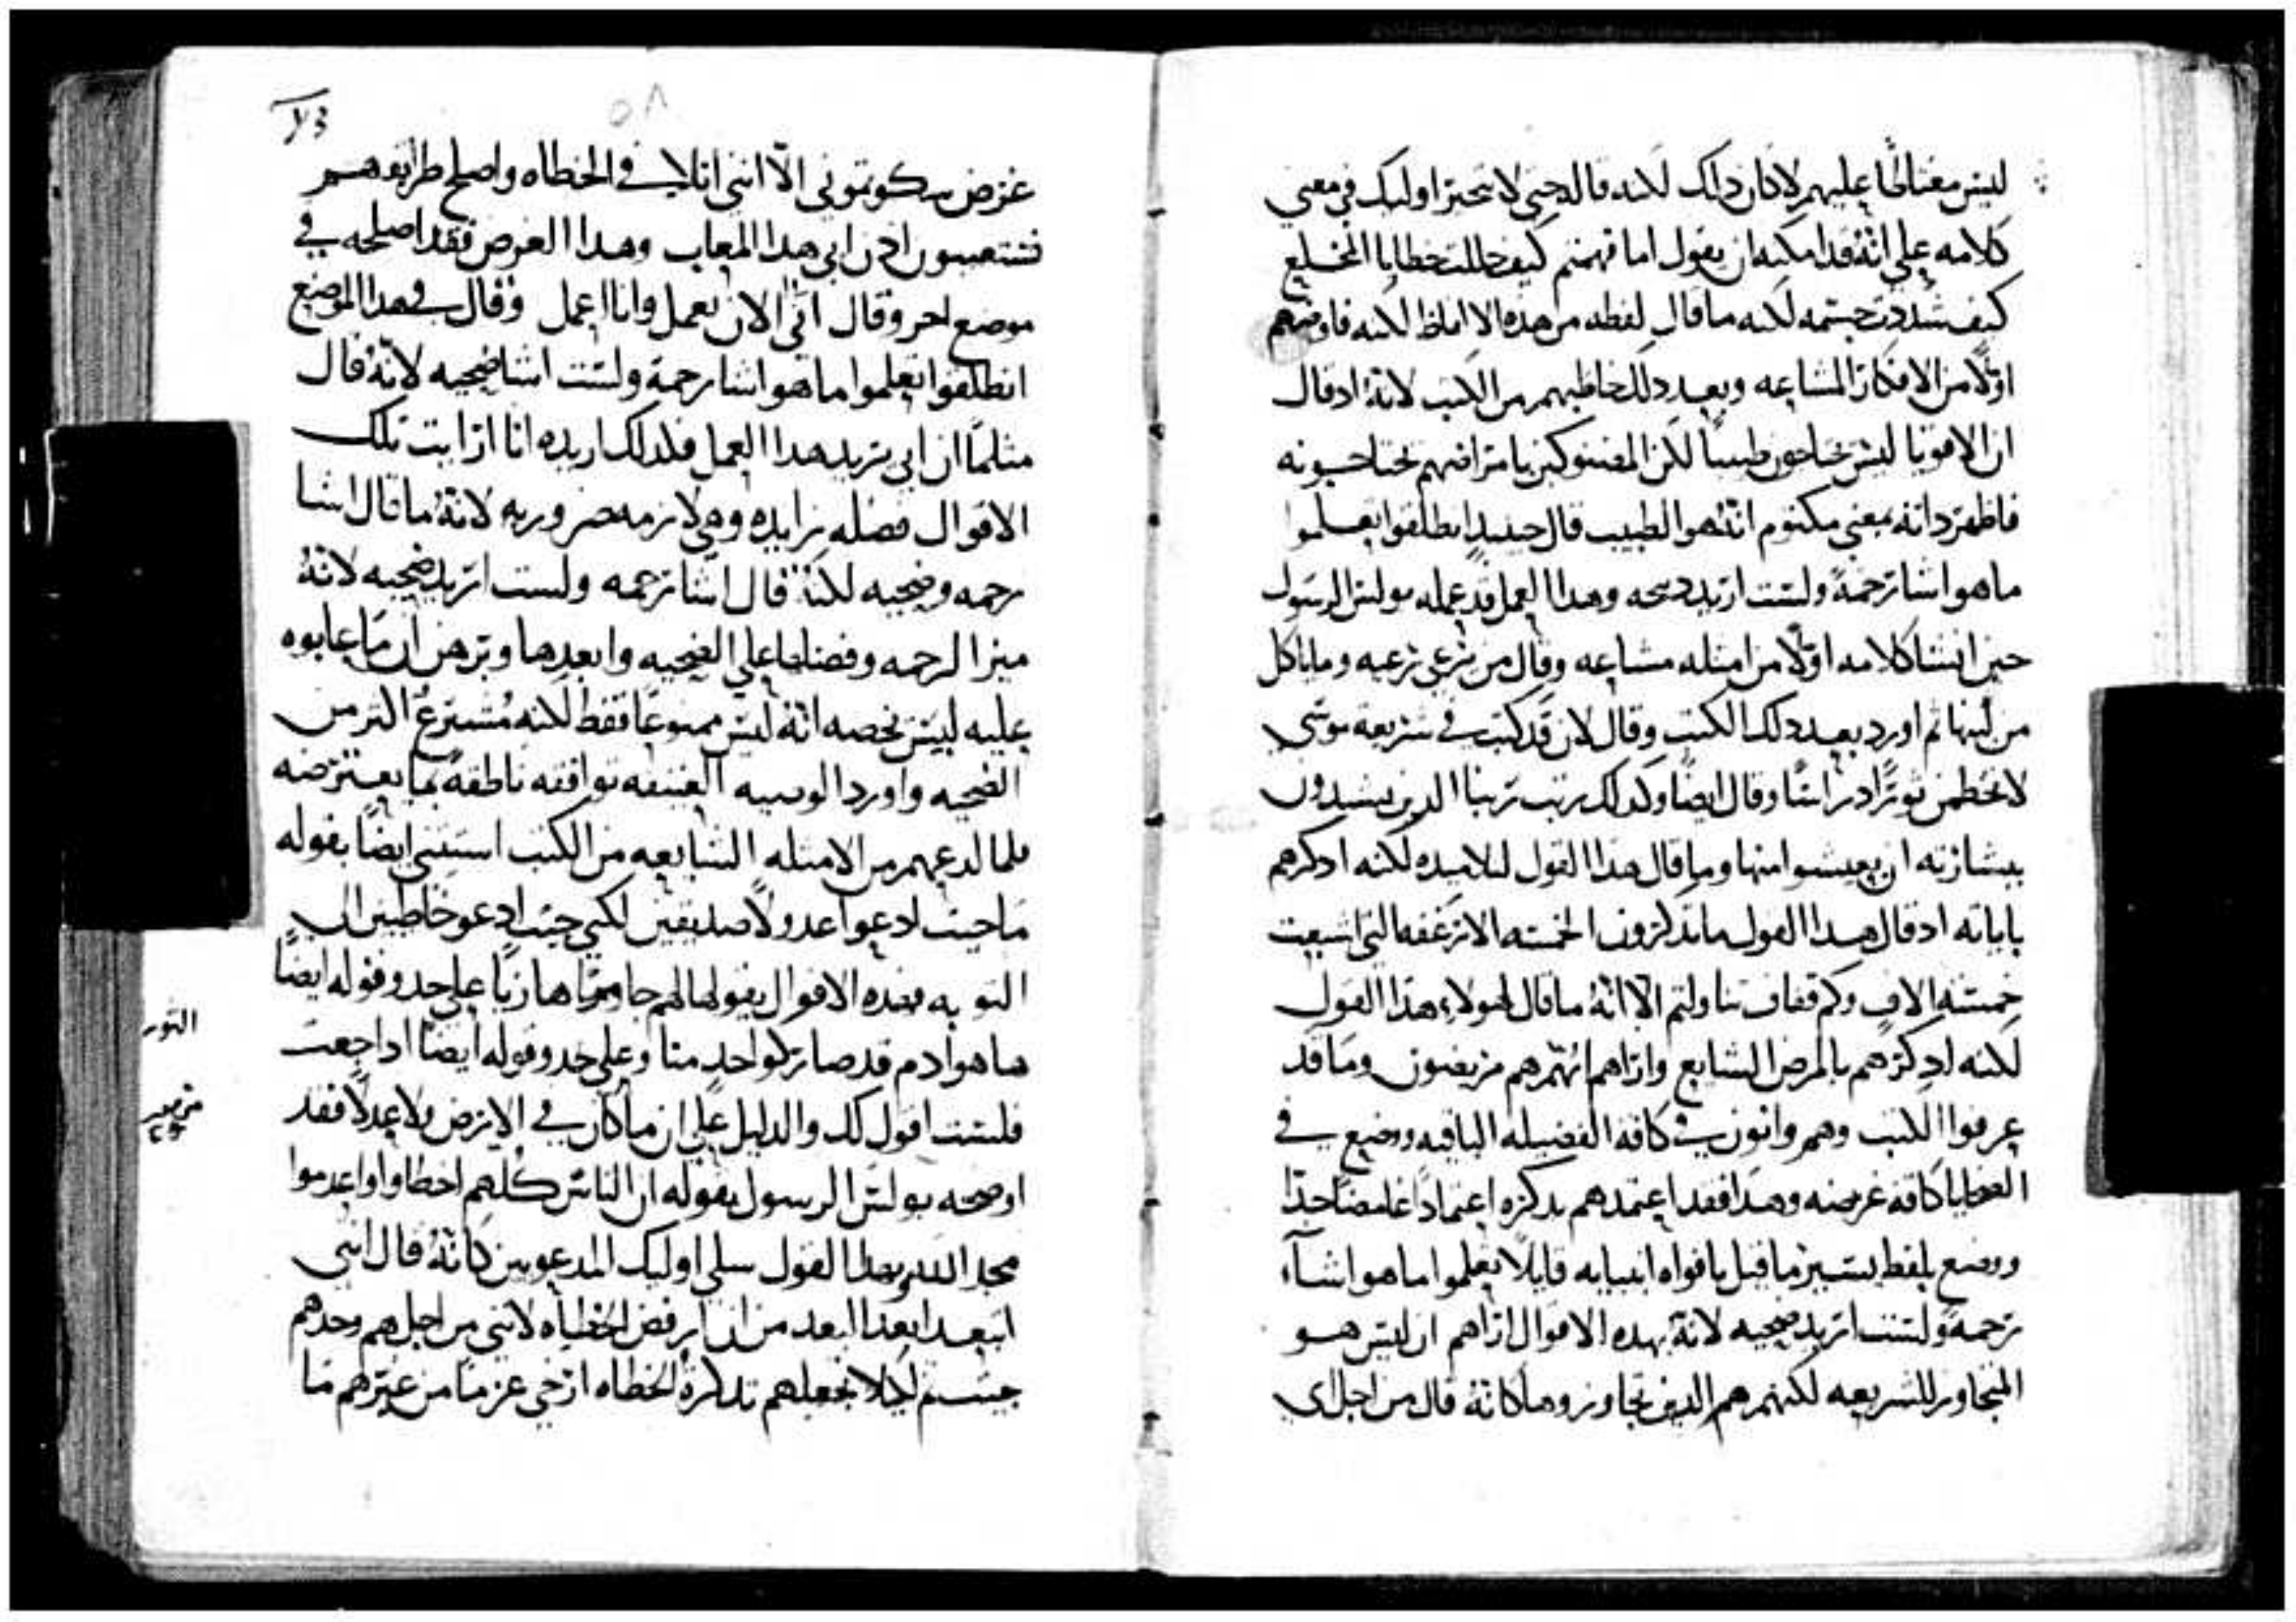 ليس مغتاظًا عليهم لا كان دلك لكنه قال حتى لا تتحيرا وليك في معني
كلامه علي انّهُ قد امكنه ان يقول اما فهمتم كيف حللت خطايا المخلع
كيف شددت جسمه لكنه ما قال لفظه من هده الالفاظ لكنه فاوضهم
اوّلًا من الافكار المشاعه وبعد دلك خاطبهم من الكتب لانهُ اد قال
ان الاقويا ليس يحتاجون طبيبا لكن المفتوكين بامراضهم يحتاجونه
فاظهر داته بمعني مكتوم انّهُ هو الطبيب قال حينيدٍ انطلقوا تعلموا
ما هو اشا رحمةً ولست اريد دبيحه وهدا العمل قد عمله بولس الرسول
حين انشا كلامه اوّلًا من امتله مشاعه وقال من يرعي رعيه وما ياكل
من لبنها تم اورد بعد دلك الكتب وقال لان قد كتب في شريعة موسي
لا تخطمن ثورًا دراسًا وقال ايضًا وكدلك رتب ربنا الدين يبشرون
ببشارته ان يعيشوا منها وما قال هدا القول لتلاميده لكنه ادكرهم
باياته اد قال هدا القول ما تدكرون الخمسه الارغفه التي اشبعت
خمسه الافٍ وكم قفاف تناولتم الا انهُ ما قال لهولاء هدا القول
لكنه ادكرهم بالمرض الشايع واراهم انهم هم مريضون وما قد
عرفوا الكتب وهم وانون في كافة الفضيله الباقيه ووضع في
الضحايا كافة غرضه وهدا فقد اعتمدهم بدكره اعتمادًا غامضًا جدًا
ووضع بلفظ يسير ما قيل بافواه انبيايه قايلًا تعلموا ما هو اشآء
رحمةً ولست اريد ضحيه لانهُ بهده الاقوال اراهم ان ليس هو
المتجاوز للشريعه لكنهم هم الدين تجاوزوها كانهُ قال من اجل اي
٥٨
غرض تشكونتوني الّا انني اتلافي الخطاه واصلح طرايقهم
فتتعيبون ادن ابي هدا المعاب وهدا الغرض فقد اصلحه في
موضع اخر وقال ابي الان يعمل وانا اعمل وقال في هدا الموضع
انطلقوا تعلموا ما هو اشا رحمة ولست اشا ضحيه لانهُ قال
مثلما ان ابي يريد هدا العمل فلدلك اريده انا ارايت تلك
الاقوال فضله زايده وهي لازمه ضروريه لانهُ ما قال اشا
رحمه وضحيه لكنهُ قال اشا رحمه ولست اريد ضحيه لانهُ
ميز الرحمه وفضلها علي الضحيه وابعدها وبرهن ان ما عابوه
عليه ليس نخصه انهُ ليس ممنوعًا فقط لكنه مُشترعُ اكتر من
الضحيه واورد الوصيه العتيقه توافقه ناطقةً بما يعترضه
فلما لدعهم من الامتله الشايعه من الكتب استتنى ايضًا بقوله
ما جيت ادعوا عدولًا صديقين لكني جيت ادعو خاطيين الى
التوبه فهده الاقوال يقولها لهم جا موّها هازيًا على حد وقوله ايضًا
ها هو ادم قد صار كواحدٍ منا وعلي حد وقوله ايضًا ادا جعت
فلست اقول لك والدليل علي ان ما كان في الارض ولا عدلًا فقد
اوضحه بولس الرسول بقوله ان الناس كلهم اخطاوا واعدموا
مجد الله وهدا القول سلي اوليك المدعويين كانهُ قال انني
ابتعد ابعدا البعد من ان ارفض الخطاه لانني من اجلهم وحدهم
جيت تم لكلا نجعلهم تدكرةُ الخطاه ارخي عزمًا من غيرهم ما
التور